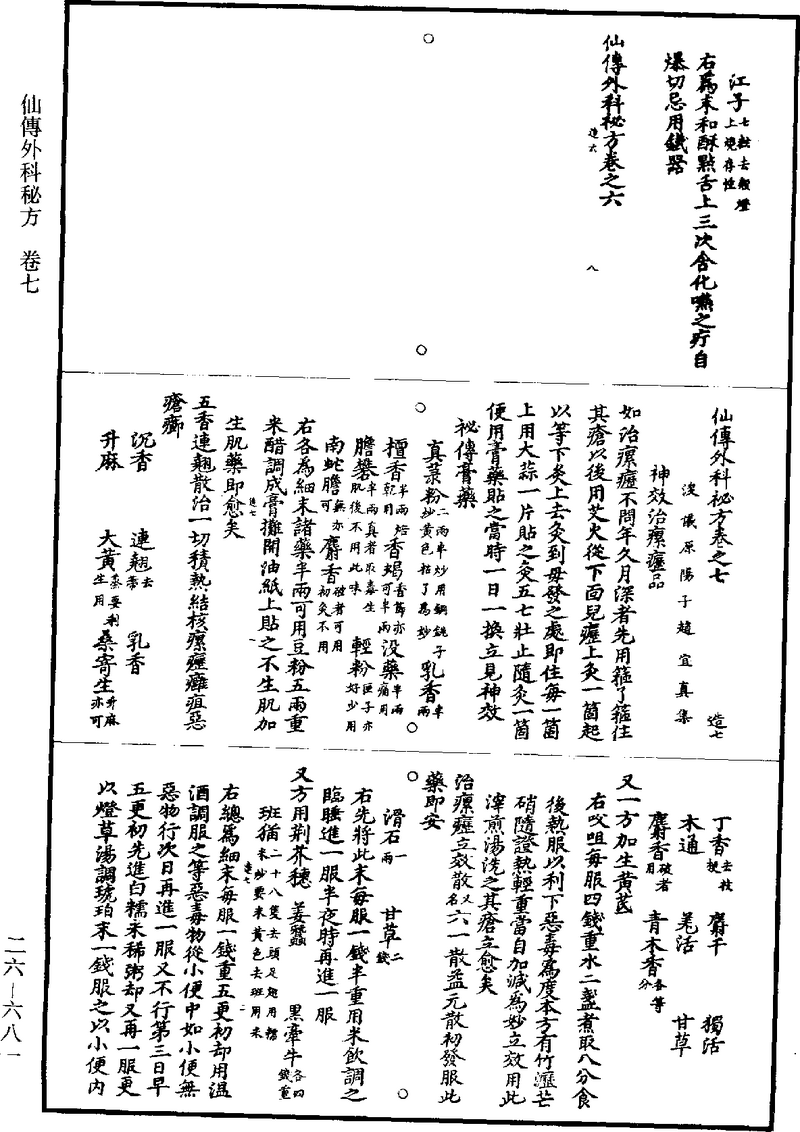 仙傳外科秘方　卷七
二六—六八一
江子七粒去殼燈上燒存性
右爲末和酥點舌上三次含化嚥之疔自
爆切忌用鐵器
仙傳外科祕方卷之六
造六　八
仙傳外科祕方卷之七　造七
浚儀原陽子趙宜真集
神效治瘰癧品
如治瘰癧不問年久月深者先用箍了箍住
其瘡以後用艾火從下面兒癧上灸一箇起
以等下灸上去灸到毋發之處即住每一箇
上用大蒜一片貼之灸五七壯止隨灸一箇
便用膏藥貼之當時一日一換立見神效
祕傳膏藥
真菉粉二兩半炒用銅銚子炒黃色枯了爲炒　乳香半兩
檀香半兩焙乾用　香蝎香飾亦可半兩　没藥半兩痛用
膽礬半兩真者取毒生肌後不用此味　輕粉匣子亦好少用
南蛇膽無亦可　麝香破者可用初灸不用
右各爲細末諸藥半兩可用豆粉五兩重
米醋調成膏攤開油紙上貼之不生肌加
生肌藥即愈矣
造七　一
五香連翹散治一切積熱結核瘰癧癰疽惡
瘡癤
沉香　連翹去蒂　乳香
升麻　大黃蒸要利生用　桑寄生升麻亦可
丁香去枝梗　麝干　獨活
木通　羌活　甘草
麝香破者用　青木香各等分
又一方加生黃芪
右㕮咀每服四錢重水二盞煮取八分食
後熱服以利下惡毒爲度本方有竹瀝芒
硝隨證熱輕重當自加減爲妙立效用此
滓煎湯洗之其瘡立愈矣
治瘰癧立效散又名六一散益元散初發服此
藥即安
滑石一兩　甘草二錢
右先將此末每服一錢半重用米飲調之
臨睡進一服半夜時再進一服
又方用荆芥穗　姜蠶　黑牽牛各四錢重
斑猫二十八隻去頭足翅用糯米炒要米黃色去斑用米
造七　二
右總爲細末每服一錢重五更初却用溫
酒調服之等惡毒物從小便中如小便無
惡物行次日再進一服又不行第三日早
五更初先進白糯米稀粥却又再一服更
以燈草湯調琥珀末一錢服之以小便內